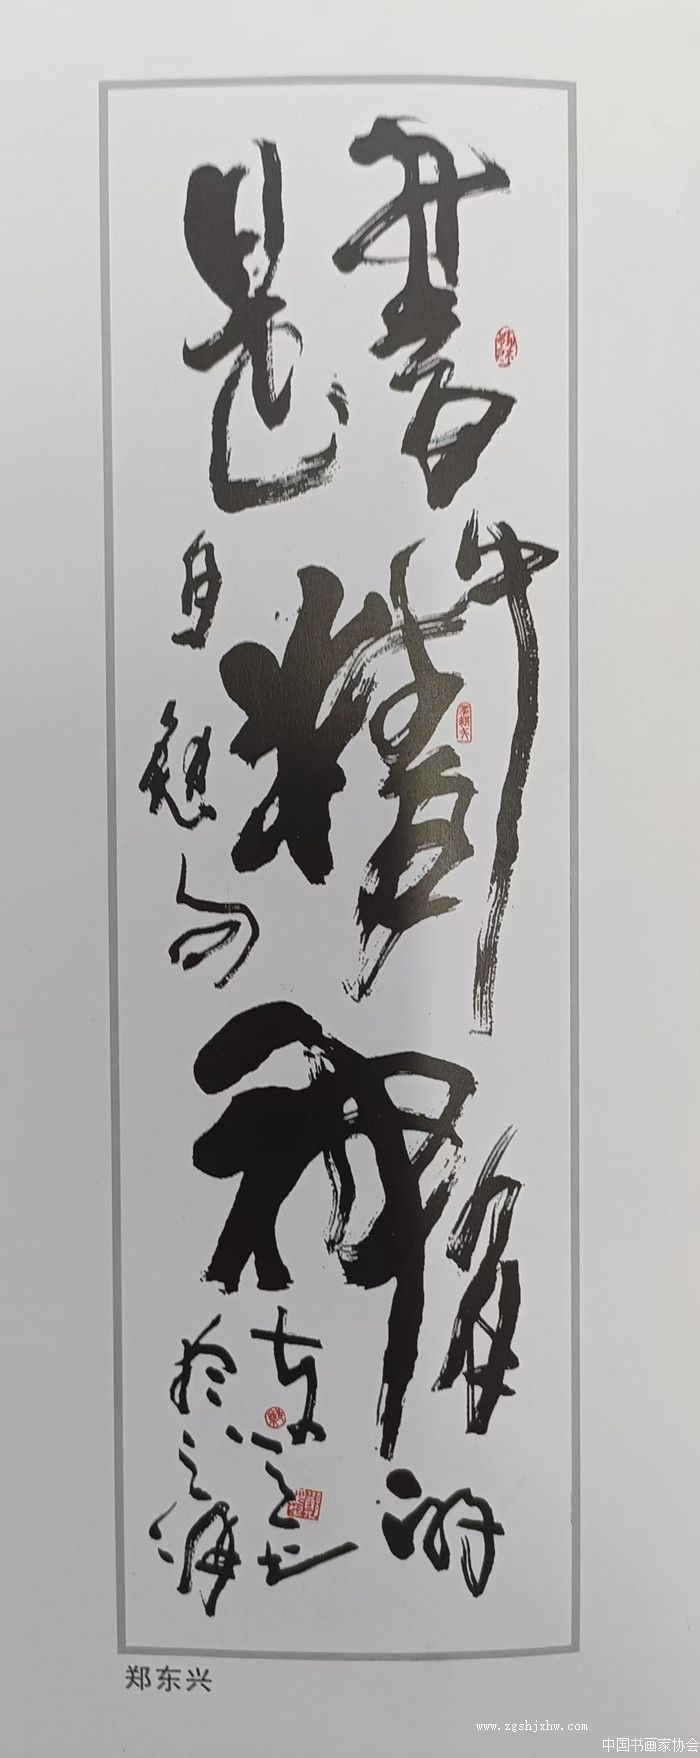 書中有的
是精神
自勉句
东兴书
郑东兴
www.zgshjxhw.com
中国书画家协会